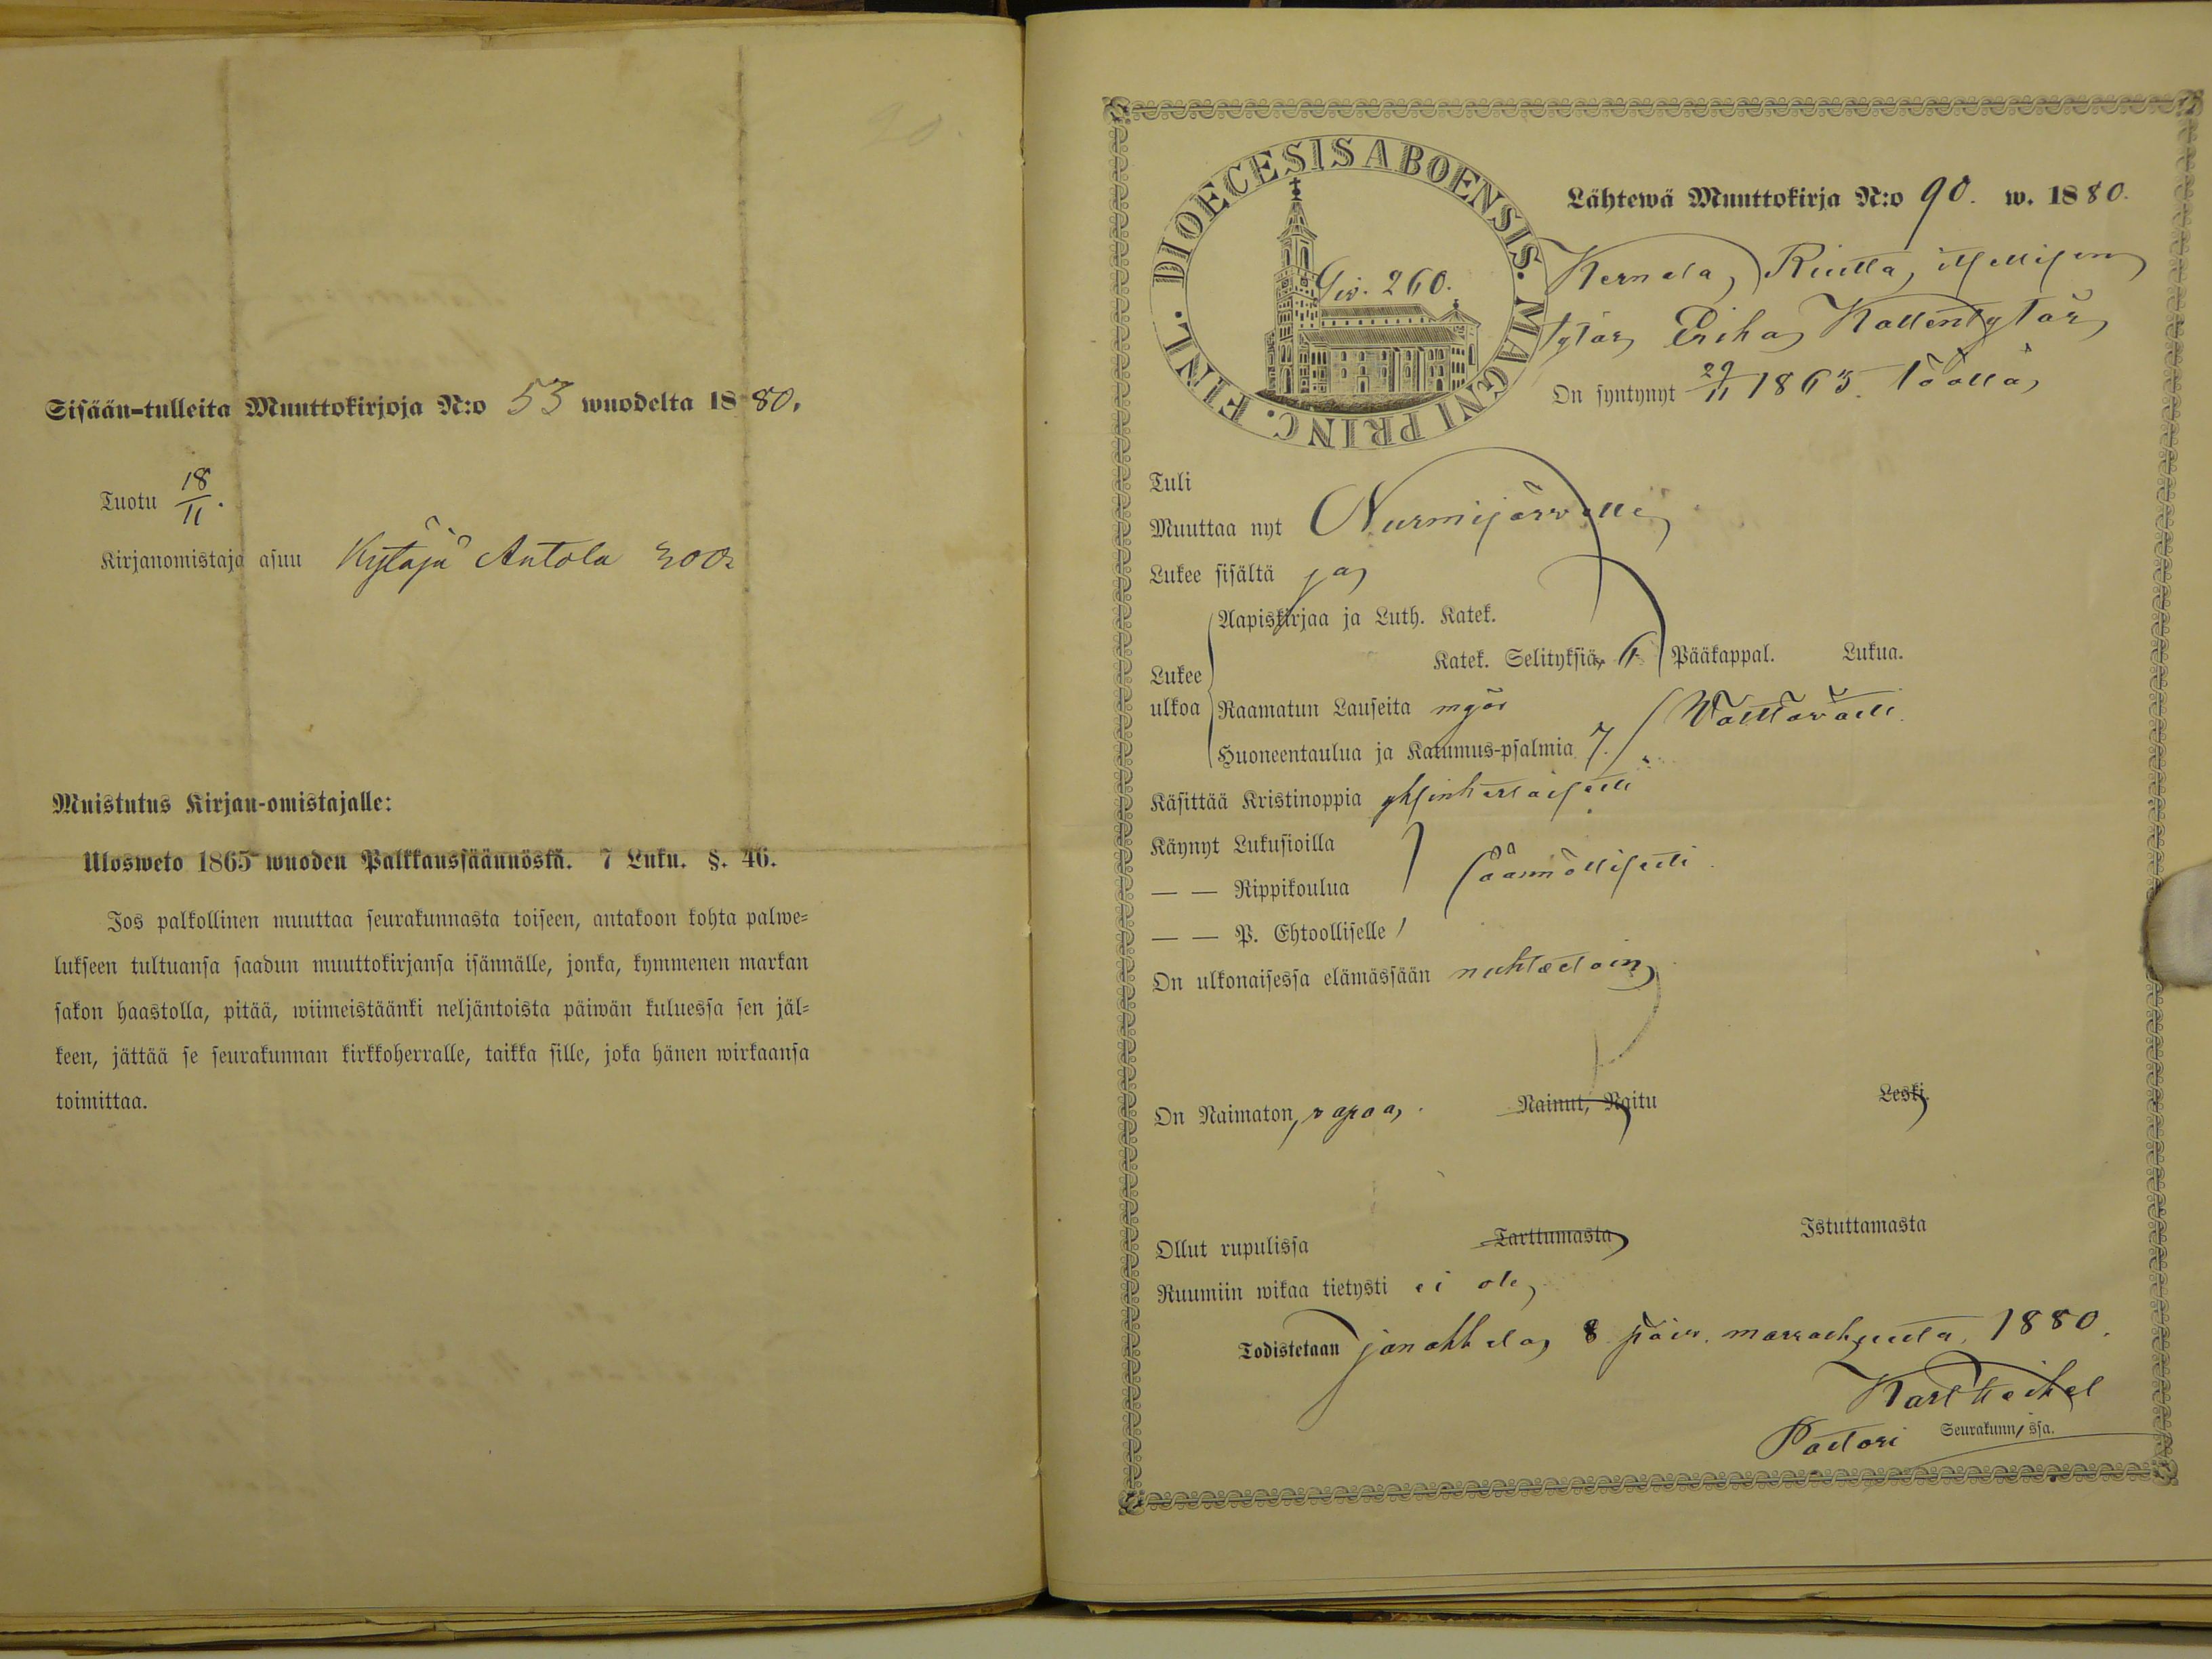 20.
Sisään-tulleita Muuttokirjoja N:o 53 wuodelta 1880.
Tuotu 18/11.
Kirjanomistaja asuu Kytäjä Antola 300
Muistutus Kirjan-omistajalle:
Ulosweto 1865 wuoden Palkkaussäännöstä. 7 Luku. §. 46.
Jos palkollinen muuttaa seurakunnasta toiseen, antakoon kohta palwe=
lukseen tultuansa saadun muuttokirjansa isännälle, jonka, kymmenen markan
sakon haastolla, pitää, wiimeistäänki neljäntoista päiwän kuluessa sen jäl=
keen, jättää se seurakunnan kirkkoherralle, taikka sille, joka hänen wirkaansa
toimittaa.
FINL. DIOECESIS ABOENSIS. MAGNI PRINC.
Lähtewä Muuttokirja N:o 90. w. 1880.
Siv. 260.
Kernala, Riutta, itsellisen
tytär Erika Kallentytär
On syntynyt 29/11 1863. täällä,
Tuli
Muuttaa nyt Nurmijärvelle
Lukee sisältä ja
Lukee ulkoa
Aapiskirjaa ja Luth. Katek.
Katek. Selityksiä, 6 Pääkappal. Lukua.
Raamatun Lauseita myös
Huoneentaulua ja Katumus-psalmia 7. Välttävästi.
Käsittää Kristinoppia yksinkertaisesti
Käynyt Lukusioilla
— — Rippikoulua Säännöllisesti.
— — P. Ehtoolliselle
On ulkonaisessa elämässään nuhtetoin
On Naimaton, vapaa, Nainut, Naitu Leski.
Ollut rupulissa Tarttumasta Istuttamasta
Ruumiin wikaa tietysti ei ole,
Todistetaan Janakkala, 8 päiv. marraskuuta, 1880.
Karl Heikel
Pastori Seurakunn, ssa.